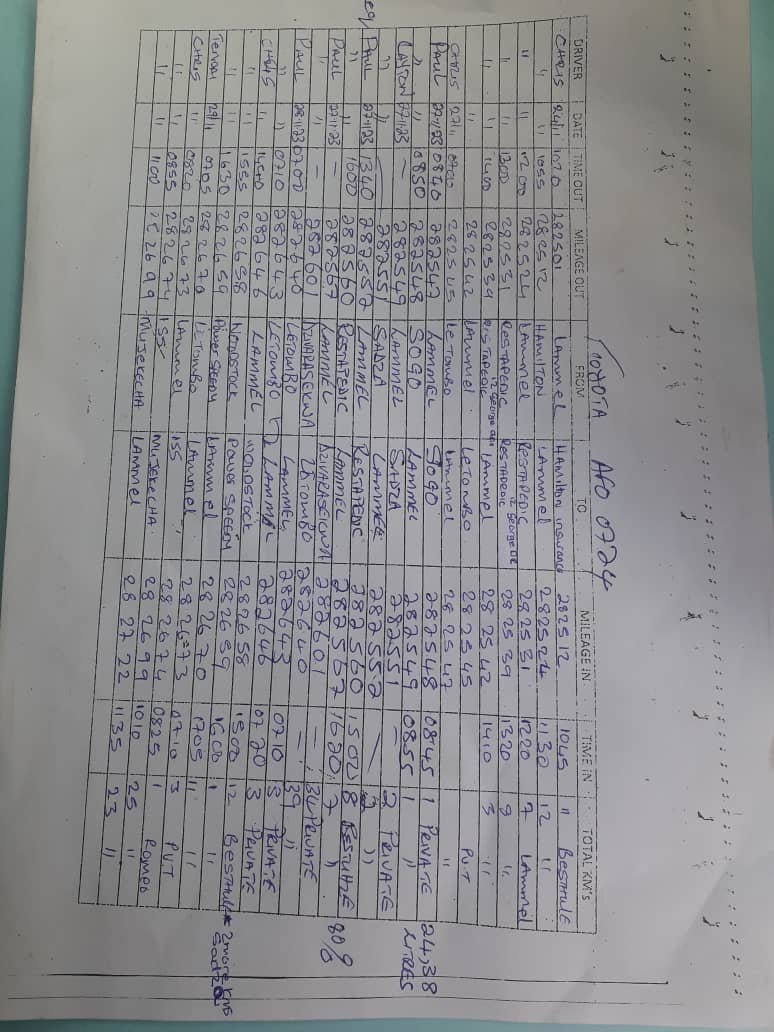 TOYOTA AFO 0724
DRIVER DATE TIME OUT MILEAGE OUT FROM TO MILEAGE IN TIME IN TOTAL KM's
CHRIS 24/11 1020 282501 LAMMEL HAMILTON insurance 282512 1045 11 BESTHULE
" " 1055 282512 HAMILTON LAMMEL 282524 1130 12 "
" " 1200 282524 LAMMEL RESTAPEDIC 282531 1220 7 LAMMEL
" " 1300 282531 RESTAPEDIC RESTAPEDIC 12 George DR 282539 1320 9 "
" " 1400 282539 RESTAPEDIC 12 George LAMMEL 282542 1410 3 "
" 282542 LAMMEL LETOMBO 282545 PVT
CHRIS 27/11 0700 282545 LETOMBO LAMMEL 282547 "
PAUL 27-11-23 0840 282547 LAMMEL SOGO 282548 0845 1 PRIVATE 24,38
" " 0850 282548 SOGO LAMMEL 282549 0855 1 " LITRES
CLAYTON 27-11-23 — 282549 LAMMEL SADZA 282551 — 2 PRIVATE
" " — 282551 SADZA LAMMEL 282552 — 2 "
eq PAUL 27-11-23 1340 282552 LAMMEL RESTAPEDIC 282560 1500 8 BESTHULE
" " 1600 282560 RESTAPEDIC LAMMEL 282567 1620 7 " 80%
PAUL 27-11-23 — 282567 LAMMEL DZIVARASEKWA 282601 — 34 PRIVATE
" " — 282601 DZIVARASEKWA LETOMBO 282640 — 39 "
PAUL 28-11-23 0700 282640 LETOMBO LAMMEL 282643 0710 3 PRIVATE
" " 0710 282643 LETOMBO LAMMEL 282646 0720 3 PRIVATE
CHRIS " 1440 282646 LAMMEL WOODSTOCK 282658 1500 12 BESTHULE * 2more KMS
" " 1555 282658 WOODSTOCK POWER SPEEDY 282659 1600 1 "
" " 1630 282659 POWER SPEEDY LAMMEL 282670 1705 11 "
TENDAI 29/11 0705 282670 LETOMBO LAMMEL 282673 0710 3 PVT
CHRIS " 0820 282673 LAMMEL ISS 282674 0825 1 ROMEO
" " 0855 282674 ISS MUJEKECHA 282699 1010 25 "
" " 1100 282699 MUJEKECHA LAMMEL 282722 1135 23 "